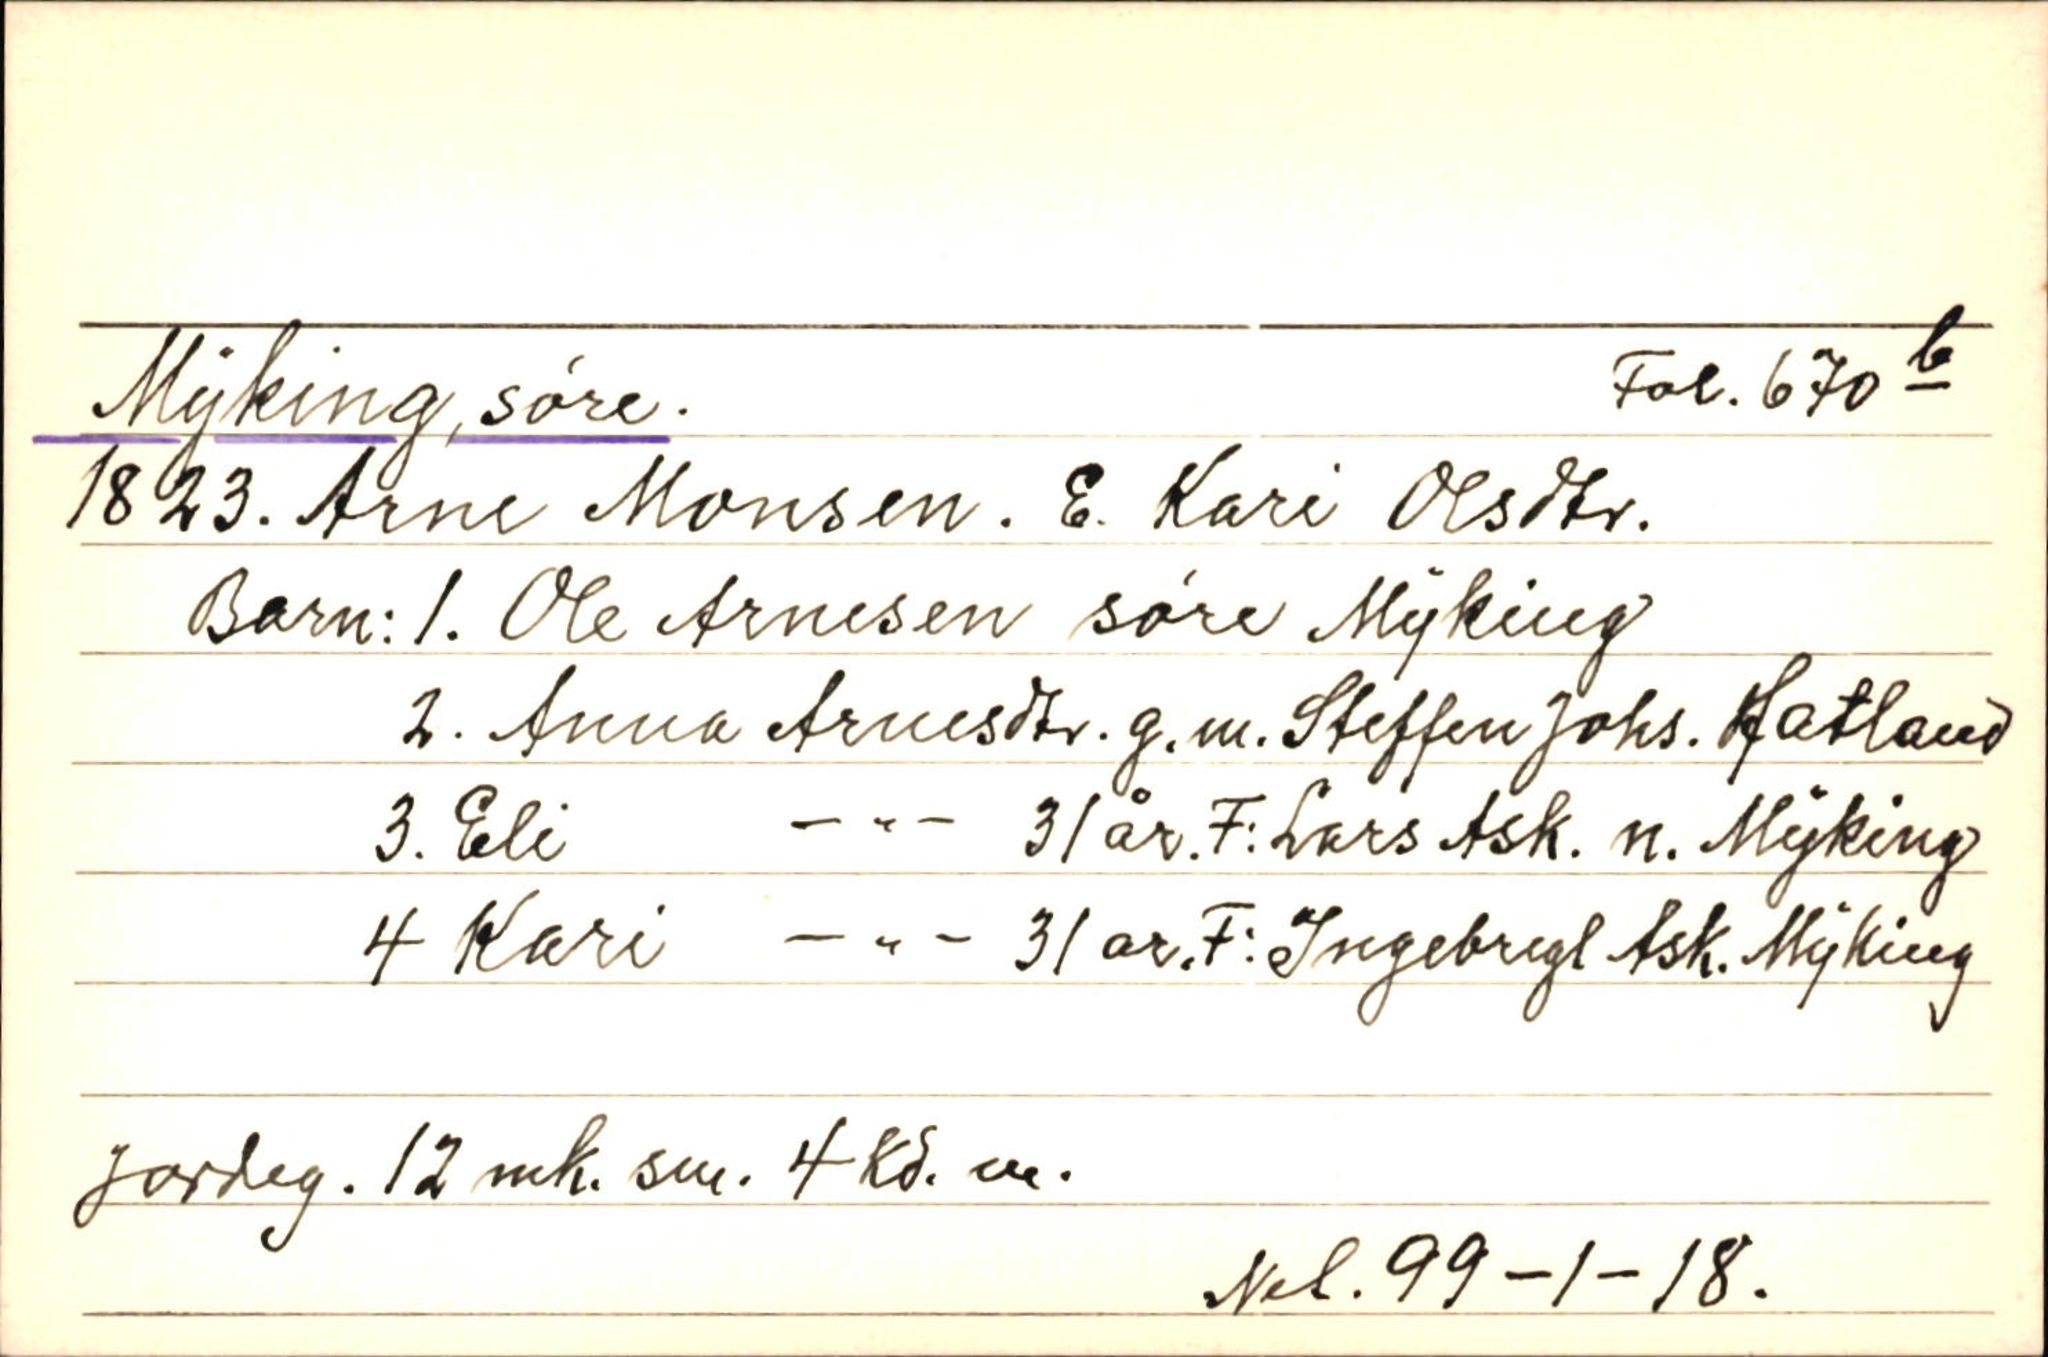 Mÿking, söre. Fol. 670 b
1823. Arne Monsen. E. Kari Olsdtr.
Barn: 1. Ole Arnesen söre Mÿking
2. Anna Arnesdtr. g. m. Steffen Johs. Hatland
3. Eli — " — 31 år. F: Lars Ask. n. Mÿking
4 Kari — " — 31 ar. F: Ingebregt Ask. Mÿking
Jordeg. 12 mk. sm. 4 Kd. m.
Nel. 99-1-18.